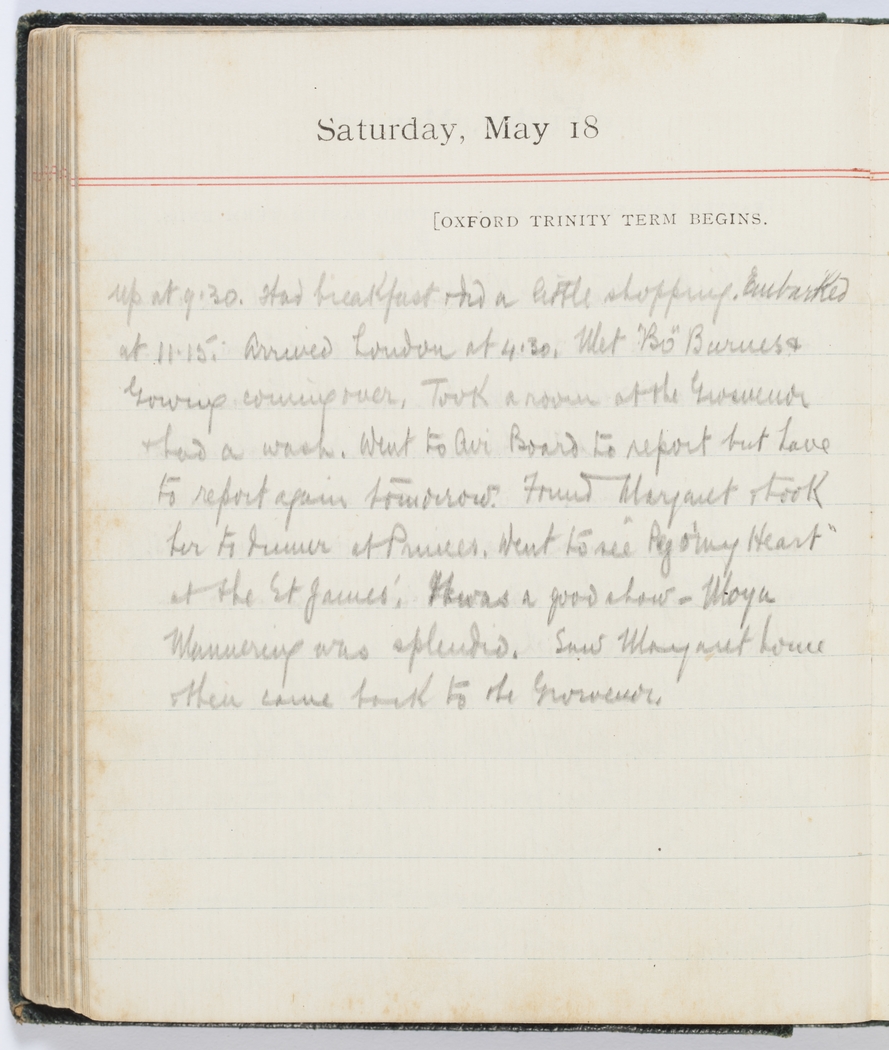 Saturday, May 18
[OXFORD TRINITY TERM BEGINS.
Up at 9.30. Had breakfast & did a little shopping. Embarked
at 11.15. Arrived London at 4.30. Met "Bo" Burnes &
Gowing coming over. Took a room at the Grosvenor
& had a wash. Went to Avi Board to report but have
to report again tomorrow. Found Margaret & took
her to dinner at Princes. Went to see "Peg o' my Heart"
at the St James'. It was a good show - Moya
Mannering was splendid. Saw Margaret home
& then came back to the Grosvenor.